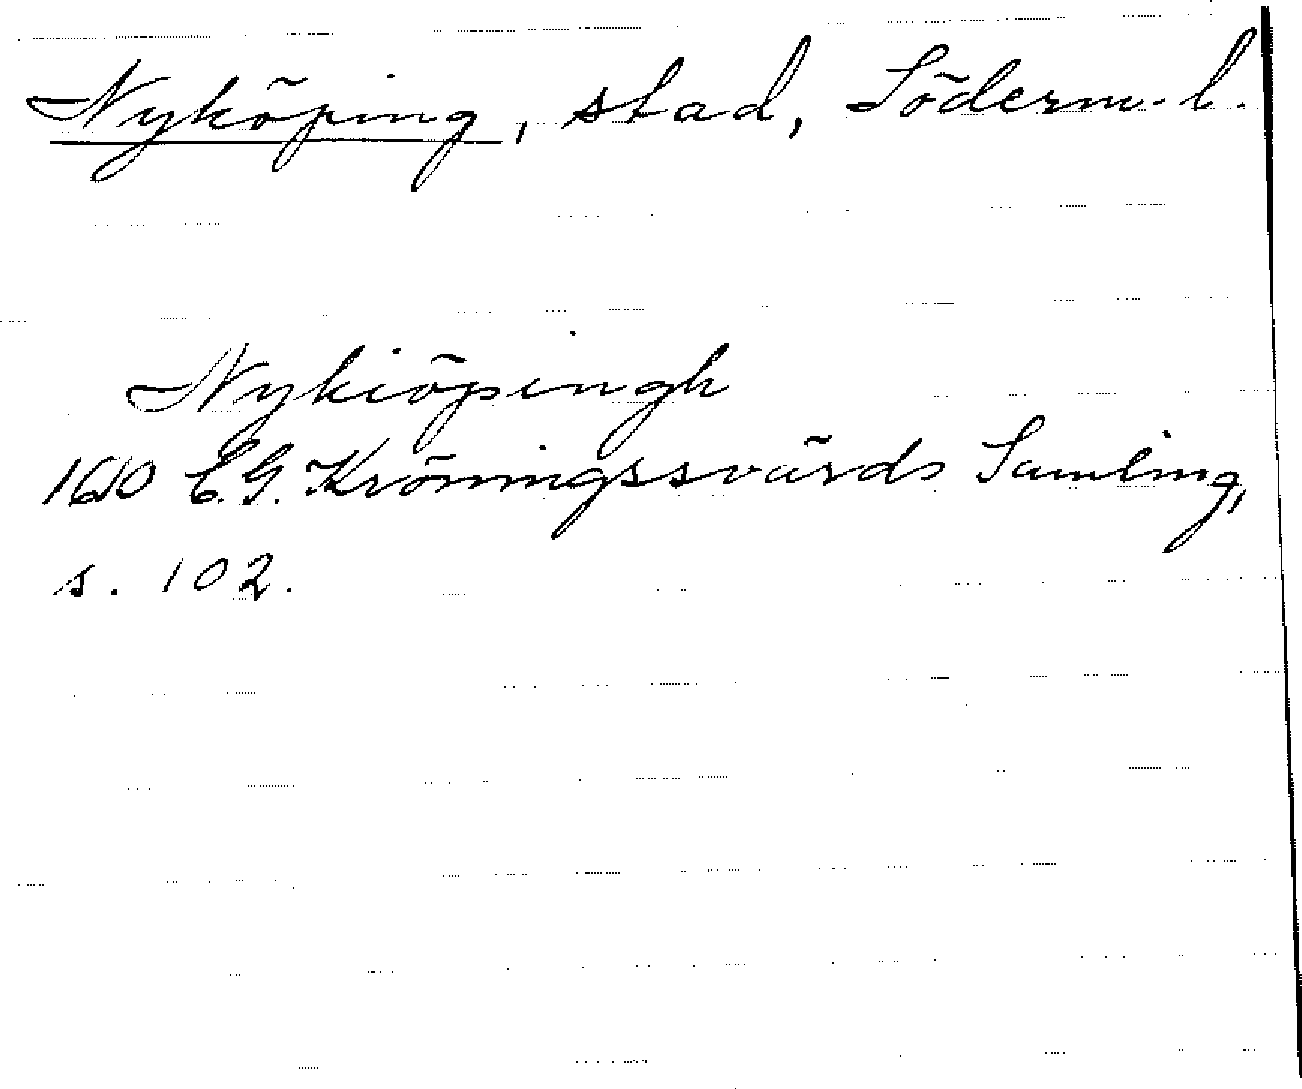 Nyköping, stad, Söderm. l.
Nykiöpingh
1610 C.G. Kröningssvärds Samling,
s. 102.